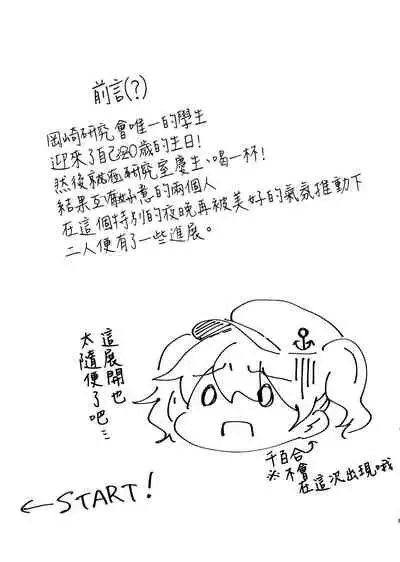 前言(?)
岡崎研究會唯一的學生
迎來了自己20歲的生日!
然後就在研究室慶生、喝一杯!
結果互有好意的兩個人
在這個特別的夜晚再被美好的氣氛推動下
二人便有了一些進展。
這展開也
太隨便了吧⋯
千百合
※不會
在這次出現哦
←START!